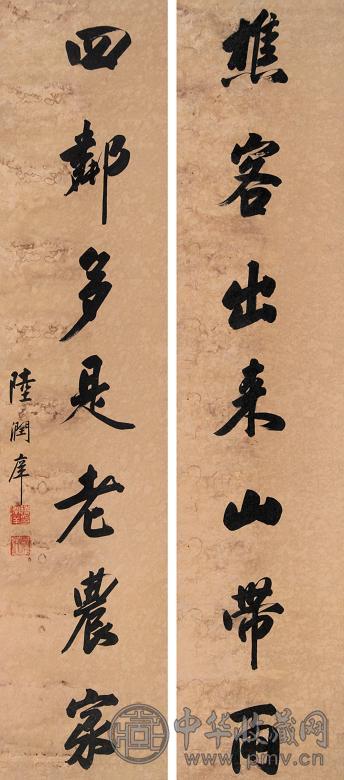 樵客出来山帶雨
四鄰多是老農家
陸潤庠
中华收藏网
www.pmv.cn